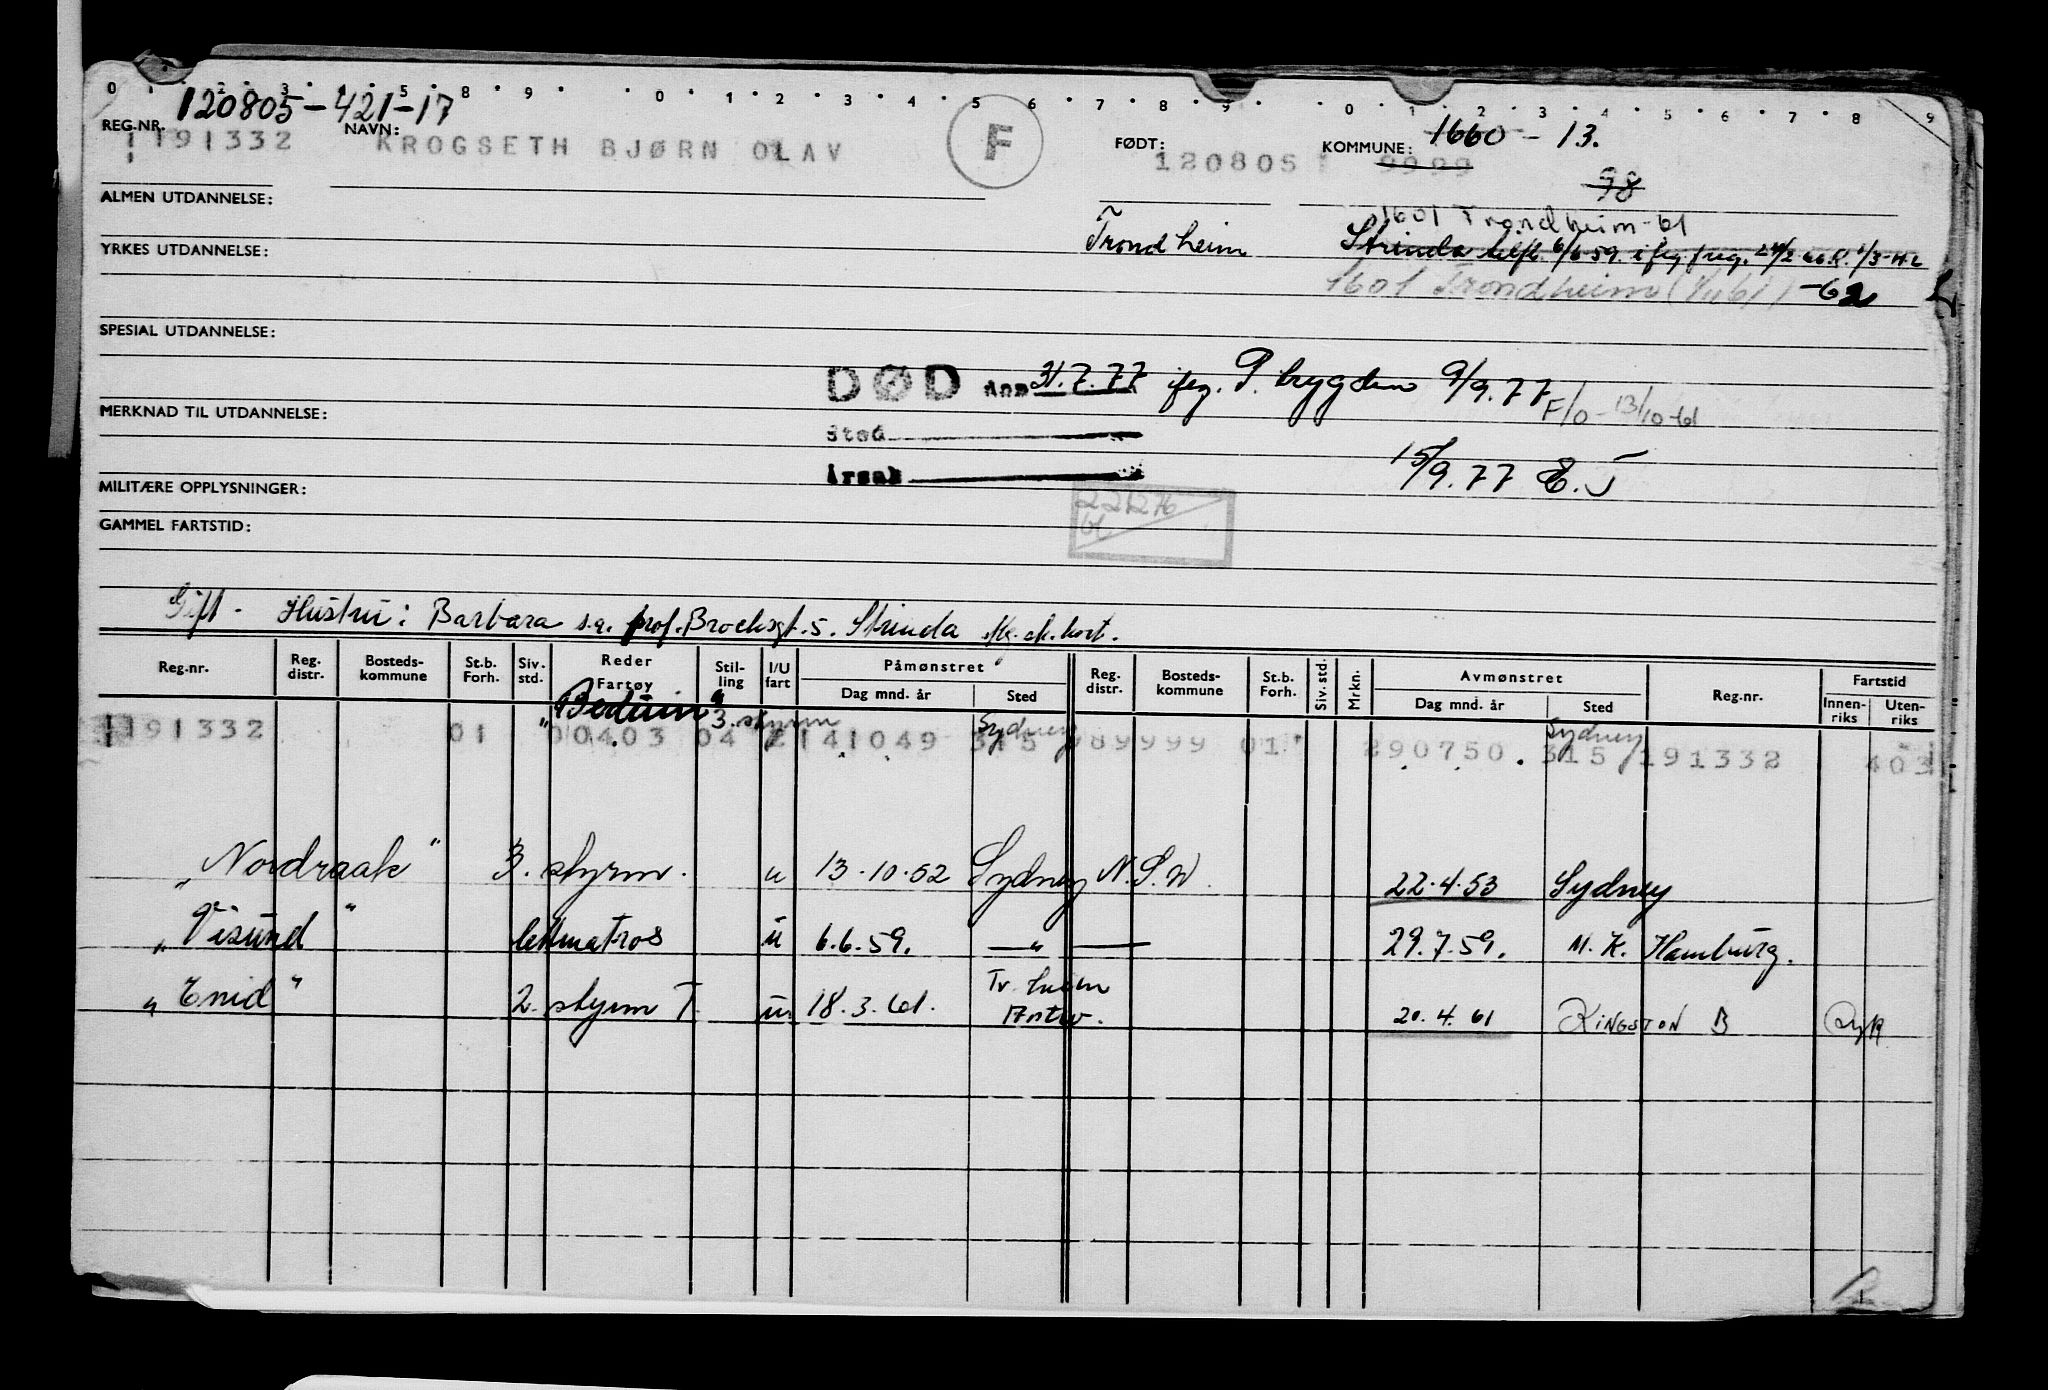 0 1 2 3 4 5 8 9 0 1 2 3 4 5 6 7 8 9 0 1 2 3 4 5 6 7 8 9
120805-421-17
REG.NR. 191332 NAVN: KROGSETH BJØRN OLAV F FØDT: 120805 KOMMUNE: 9999 1660-13.
98
ALMEN UTDANNELSE:
1601 Trondheim-61
YRKES UTDANNELSE: Trondheim Strinda
1601 Trondheim -62
SPESIAL UTDANNELSE:
DØD den 31.7.77 iføg. P. trygden 9/9.77
F/0-13/10-61
MERKNAD TIL UTDANNELSE:
Sted
Årsak 15/9.77 E.J
MILITÆRE OPPLYSNINGER:
221276
GAMMEL FARTSTID:
Gift - Hustru: Barbara s.a. prof. Brochsgt. 5. Strinda
Reg.nr. Reg. distr. Bosteds-kommune St.b. Forh. Siv. std. Reder Fartøy Stil-ling I/U fart Påmønstret Dag mnd. år Sted Reg. distr. Bosteds-kommune St.b. Forh. Siv. std. Mrkn. Avmønstret Dag mnd. år Sted Reg.nr. Fartstid Innen-riks Uten-riks
"Beduin" 3. styrm Sydney Sydney
191332 01 00403 04 2141049 315 989999 01 290750 315 191332 403
"Nordraak" 3. styrm. u 13.10.52 Sydney N.S.W. 22.4.53 Sydney
"Visund" lettmatros u 6.6.59. —"— 29.7.59. M.K. Hamburg.
"Enid" 2. styrm T. u. 18.3.61. Tr.heim Antw. 20.4.61 KINGSTON B